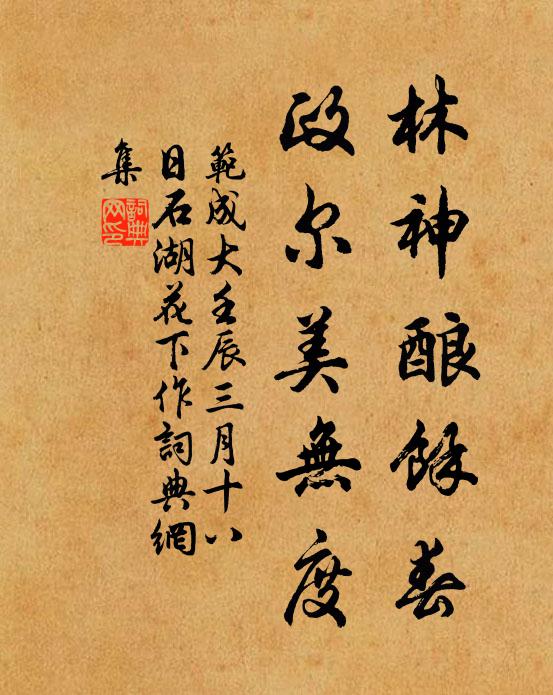 林神酿餘春
政尔美無度
範成大壬辰三月十八
日石湖花下作詞典網
集
詞典網印